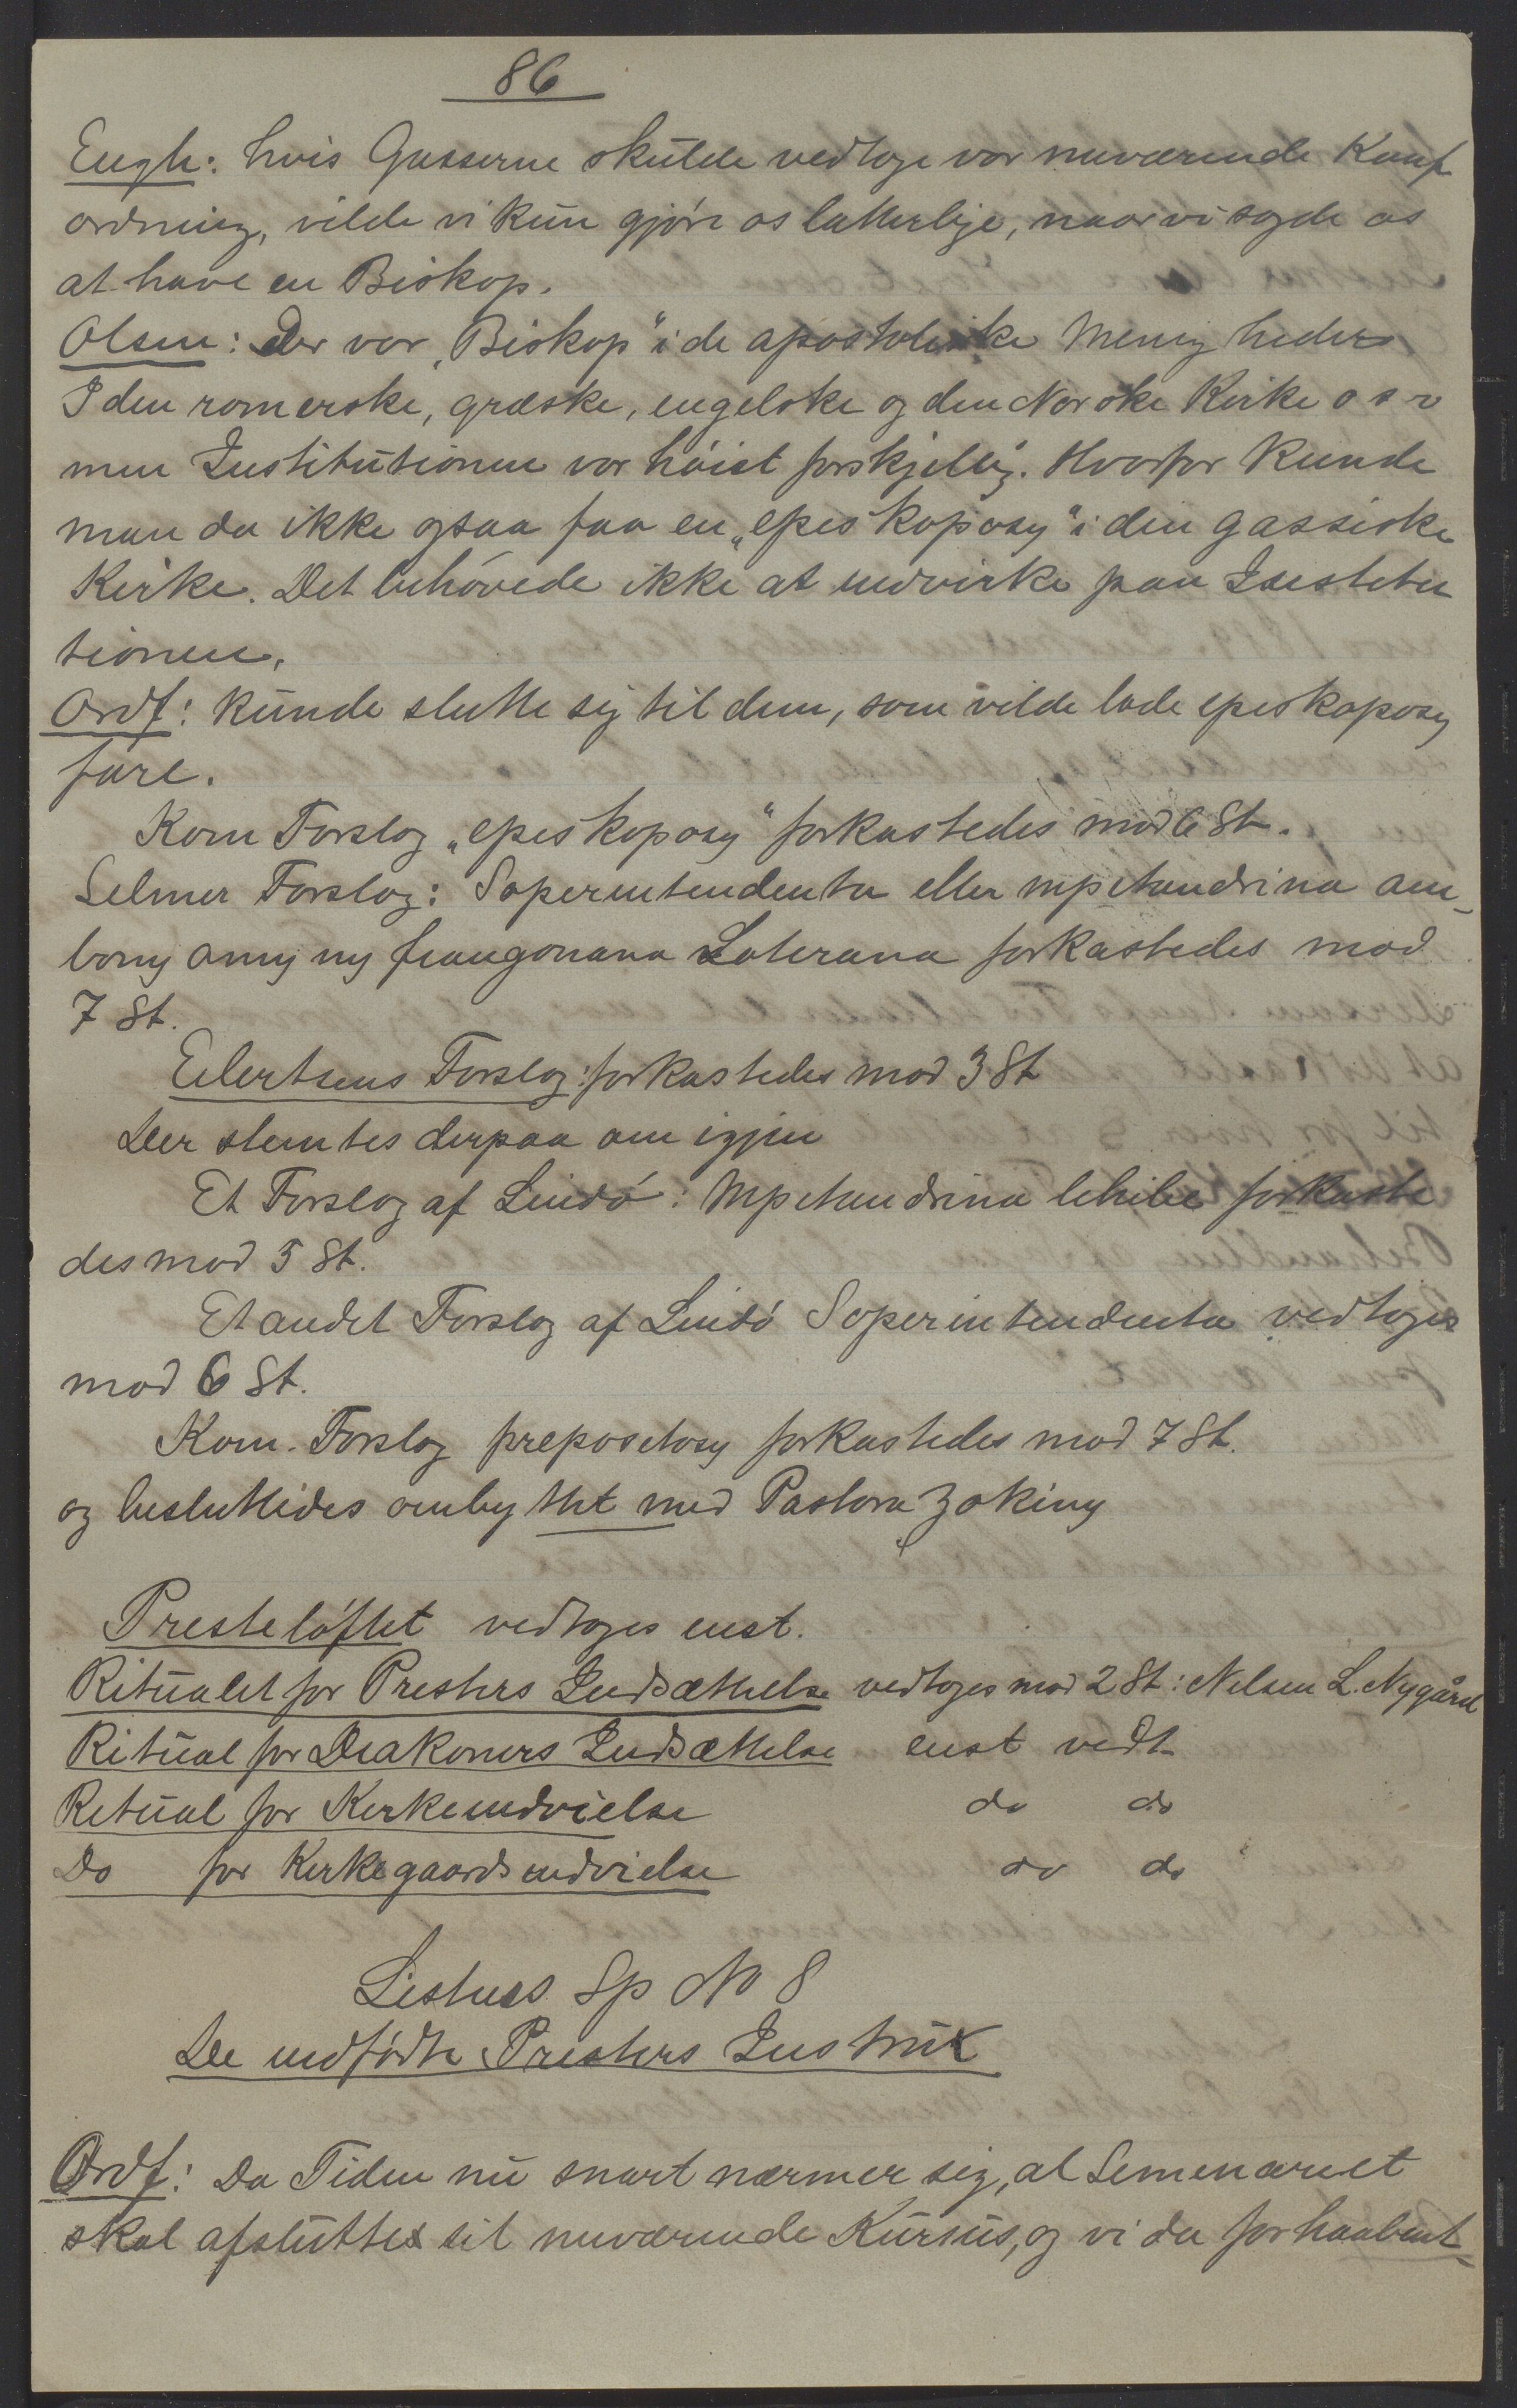 86
Engh: hvis Gasserne skulde vedtage vor nuværende Konf
ordning, vilde vi kun gjøre os latterlige, naar vi sagde os
at have en Biskop.
Olsen: Der var „Biskop“ i de apostoliske Menigheder
I den romerske, græske, engelske og den Norske Kirke o s v
men Institutionen var høist forskjellig. Hvorfor kunde
man da ikke ogsaa faa en „episkoposy“ i den gassiske
Kirke. Det behøvede ikke at indvirke paa Institu
tionen.
Ordf: kunde slutte sig til dem, som vilde lade episkoposy
fare.
Kom Forslag „episkoposy“ forkastedes mod 6 St.
Selmer Forslag: Soperintendenta eller mpitandrina am-
bony amy ny fiangonana Loterana forkastedes mod
7 St.
Eilertsens Forslag: forkastedes mod 3 St
Der stemtes derpaa om igjen
Et Forslag af Lindø: Mpitandrina lehibe forkaste
des mod 5 St.
Et andet Forslag af Lindø Soperintendenta vedtoges
mod 6 St.
Kom. Forslag prepositosy forkastedes mod 7 St.
og besluttedes ombyttet med Pastora zokiny
Presteløftet vedtoges enst.
Ritualet for Presters Indsættelse vedtoges mod 2 St: Nilsen L. Nygård
Ritual for Diakoners Indsættelse enst vedt
Ritual for Kirkeindvielse do do
Do for Kirkegaardsindvielse do do
Listens Sp No 8
De indfødte Presters Instrux
Ordf: Da Tiden nu snart nærmer sig, at Semenariet
skal afsluttes sit nuværende Kursus, og vi da forhaabent-